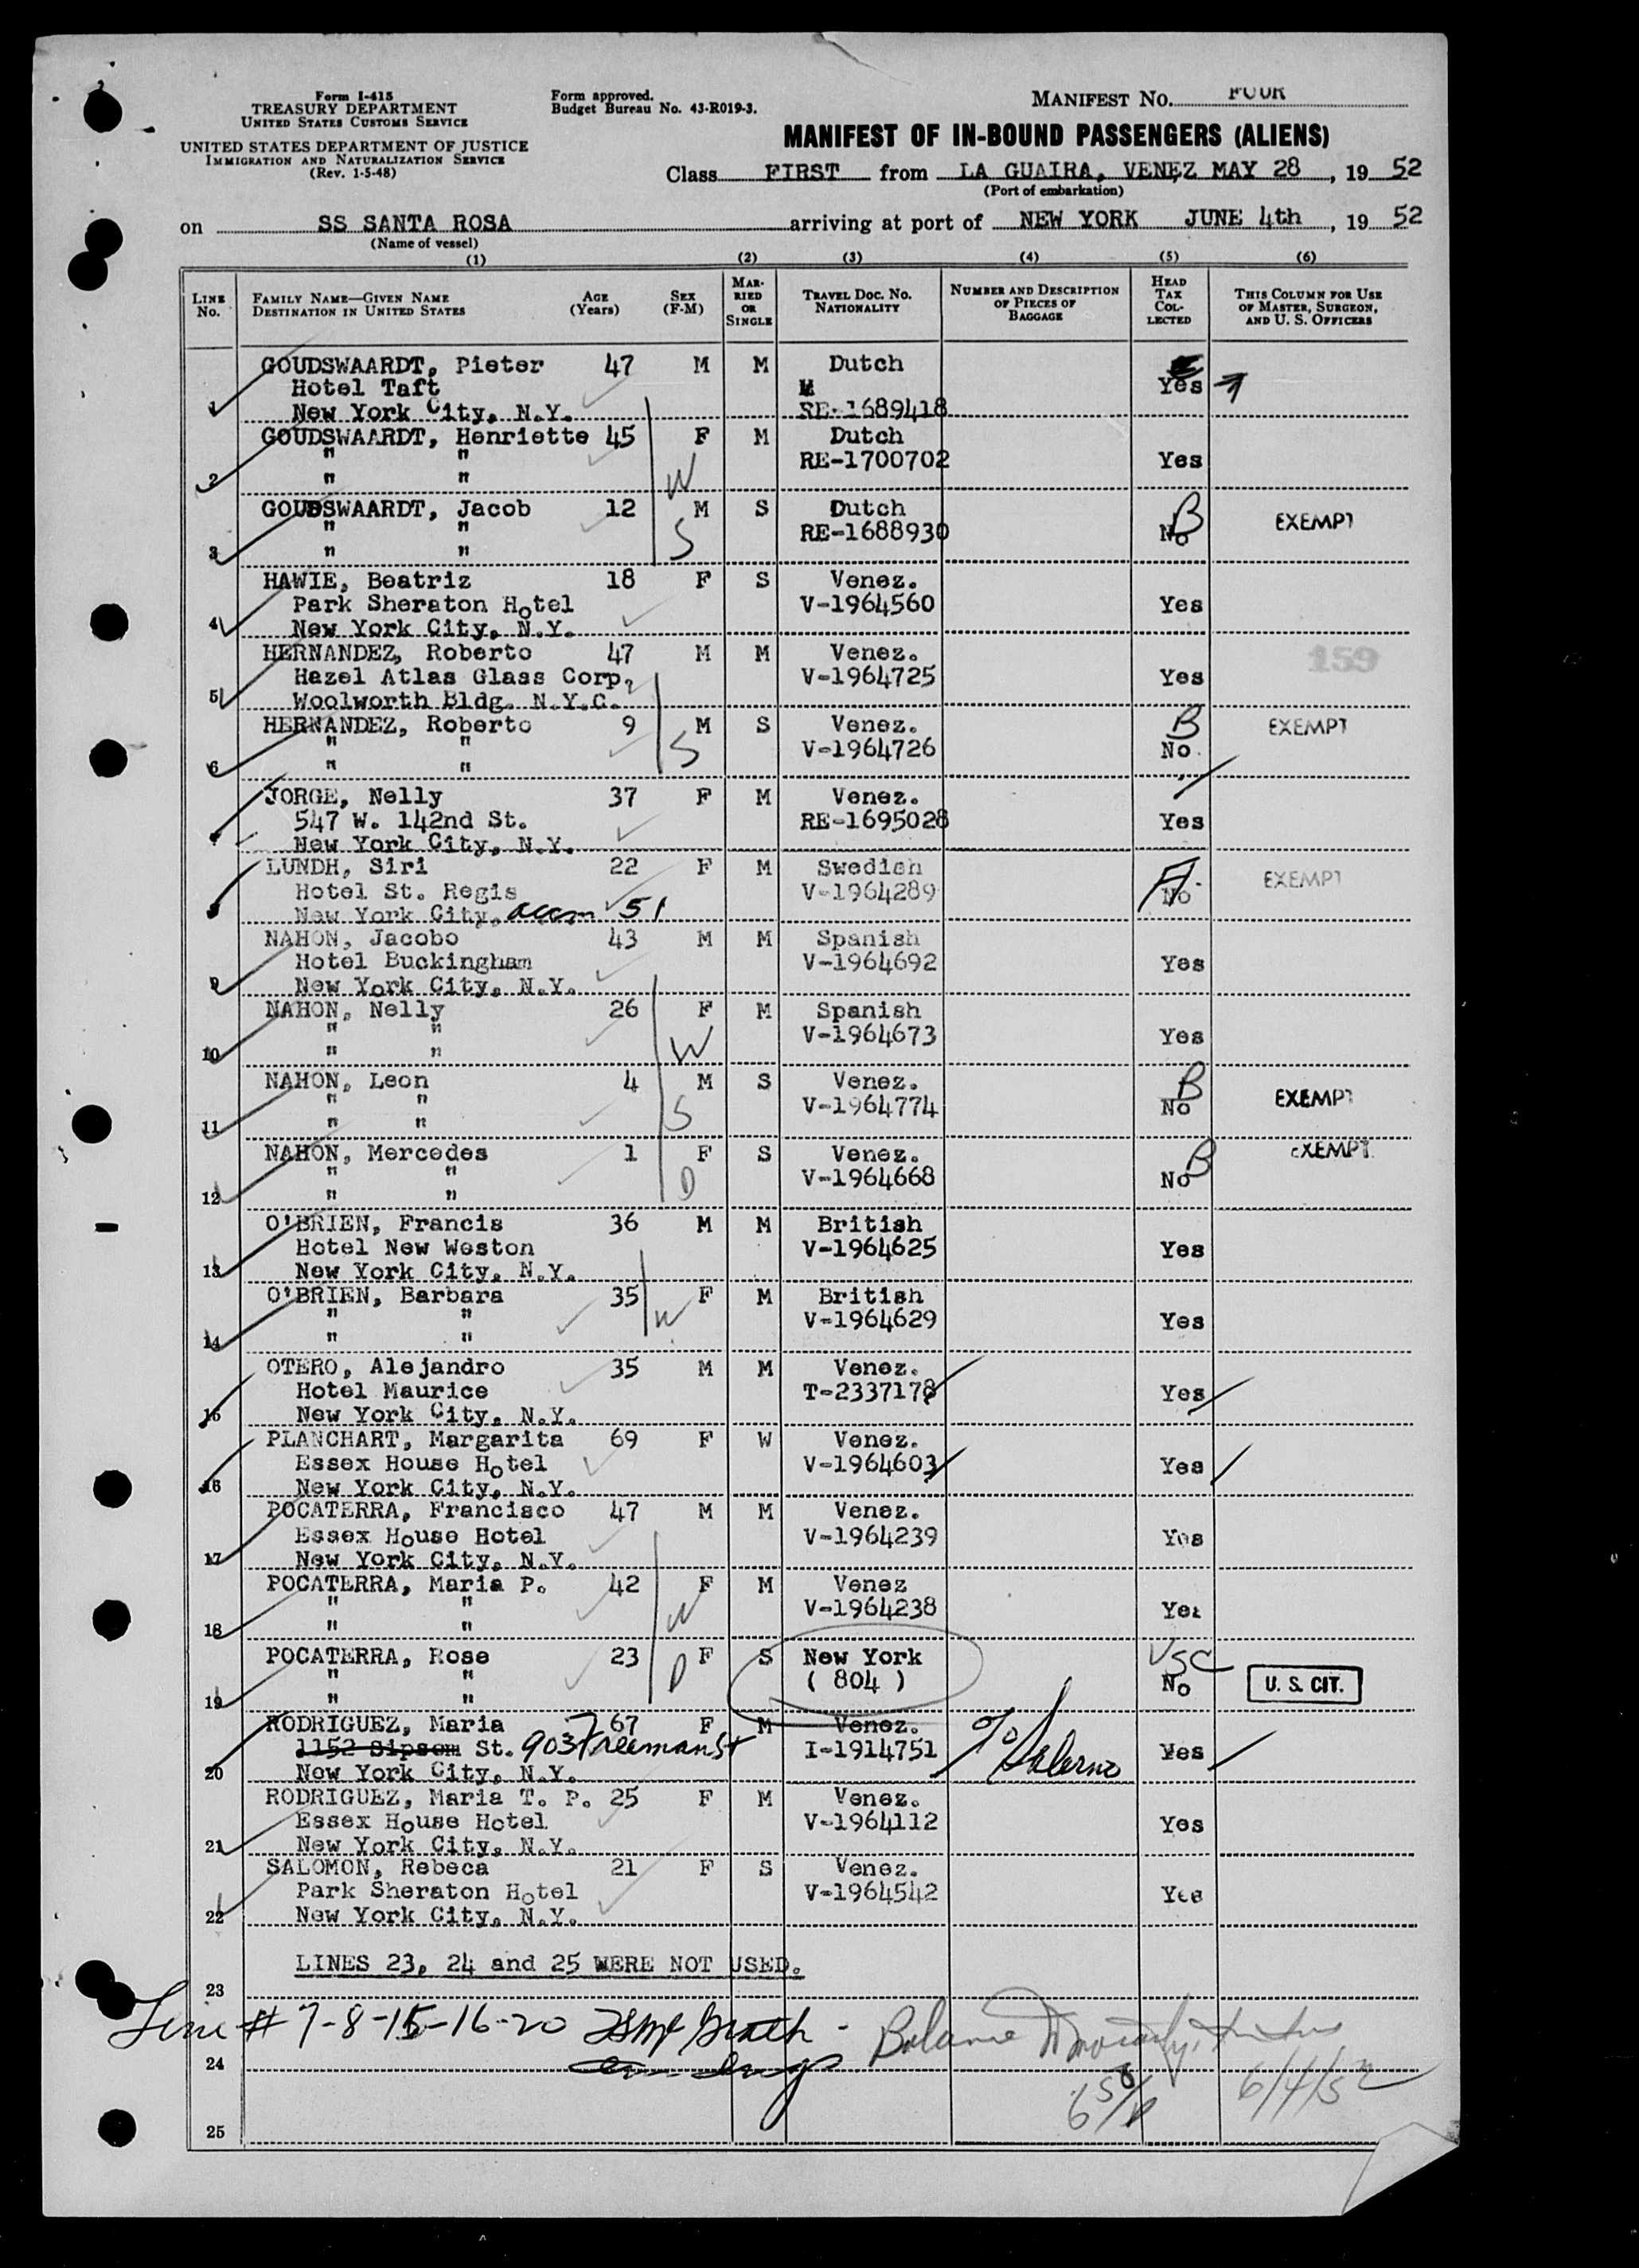 Form I-415
TREASURY DEPARTMENT
UNITED STATES CUSTOMS SERVICE
UNITED STATES DEPARTMENT OF JUSTICE
IMMIGRATION AND NATURALIZATION SERVICE
(Rev. 1-5-48)
Form approved.
Budget Bureau No. 43-R019-3.
MANIFEST NO. FOUR
MANIFEST OF IN-BOUND PASSENGERS (ALIENS)
Class FIRST from LA GUAIRA, VENEZ MAY 28, 19 52
(Port of embarkation)
on SS SANTA ROSA arriving at port of NEW YORK JUNE 4th, 19 52
(Name of vessel)
(1) (2) (3) (4) (5) (6)
LINE NO. FAMILY NAME—GIVEN NAME DESTINATION IN UNITED STATES AGE (Years) SEX (F-M) MARRIED OR SINGLE TRAVEL DOC. NO. NATIONALITY NUMBER AND DESCRIPTION OF PIECES OF BAGGAGE HEAD TAX COLLECTED THIS COLUMN FOR USE OF MASTER, SURGEON, AND U. S. OFFICERS
GOUDSWAARDT, Pieter 47 M M Dutch
Hotel Taft Yes
1 New York City, N.Y. RE-1689418
GOUDSWAARDT, Henriette 45 F M Dutch
" " RE-1700702 Yes
2 " " W
GOUDSWAARDT, Jacob 12 M S Dutch B EXEMPT
" " RE-1688930 No
3 " " S
HAWIE, Beatriz 18 F S Venez.
Park Sheraton Hotel V-1964560 Yes
4 New York City, N.Y.
HERNANDEZ, Roberto 47 M M Venez. 159
Hazel Atlas Glass Corp, V-1964725 Yes
5 Woolworth Bldg. N.Y.C.
HERNANDEZ, Roberto 9 M S Venez. B EXEMPT
" " S V-1964726 No
6 " "
JORGE, Nelly 37 F M Venez.
547 W. 142nd St. RE-1695028 Yes
7 New York City, N.Y.
LUNDH, Siri 22 F M Swedish EXEMPT
Hotel St. Regis V-1964289 No
8 New York City, 51
NAHON, Jacobo 43 M M Spanish
Hotel Buckingham V-1964692 Yes
9 New York City, N.Y.
NAHON, Nelly 26 F M Spanish
" " V-1964673 Yes
10 " " W
NAHON, Leon 4 M S Venez. B EXEMPT
" " V-1964774 No
11 " " S
NAHON, Mercedes 1 F S Venez. B EXEMPT
" " V-1964668 No
12 " " D
O'BRIEN, Francis 36 M M British
Hotel New Weston V-1964625 Yes
13 New York City, N.Y.
O'BRIEN, Barbara 35 F M British
" " W V-1964629 Yes
14 " "
OTERO, Alejandro 35 M M Venez.
Hotel Maurice T-2337178 Yes
15 New York City, N.Y.
PLANCHART, Margarita 69 F W Venez.
Essex House Hotel V-1964603 Yes
16 New York City, N.Y.
POCATERRA, Francisco 47 M M Venez.
Essex House Hotel V-1964239 Yes
17 New York City, N.Y.
POCATERRA, Maria P. 42 F M Venez
" " W V-1964238 Yes
18 " "
POCATERRA, Rose 23 F S New York USC
" " D ( 804 ) No U. S. CIT.
19 " "
RODRIGUEZ, Maria 67 F M Venez.
1152 Sipsom St. 903 Freeman St I-1914751 % Salerno Yes
20 New York City, N.Y.
RODRIGUEZ, Maria T. P. 25 F M Venez.
Essex House Hotel V-1964112 Yes
21 New York City, N.Y.
SALOMON, Rebeca 21 F S Venez.
Park Sheraton Hotel V-1964542 Yes
22 New York City, N.Y.
LINES 23, 24 and 25 WERE NOT USED.
23
Line # 7-8-15-16-20
Balance
24
6/4/52
25